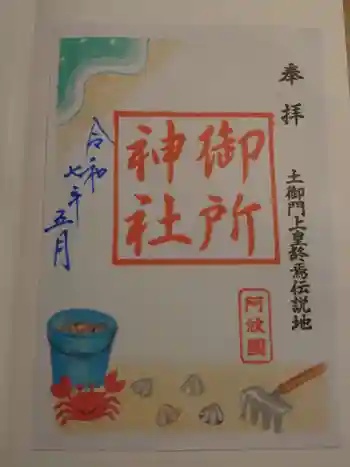 奉拝
土御門上皇終焉伝説地
御所
神社
阿波國
令和七年五月